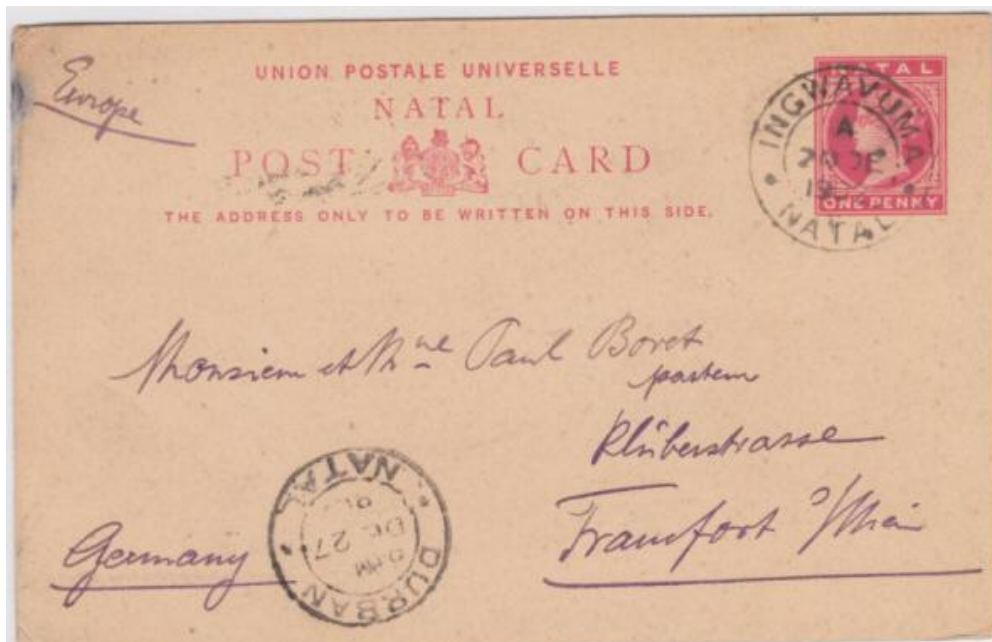 Europe
UNION POSTALE UNIVERSELLE
NATAL
POST CARD
THE ADDRESS ONLY TO BE WRITTEN ON THIS SIDE.
NATAL
ONE PENNY
INGWAVUMA
A
DE
NATAL
Monsieur et Mme Paul Bovet
pasteur
Klüberstrasse
Francfort s/Main
Germany
DURBAN
DE 27
NATAL